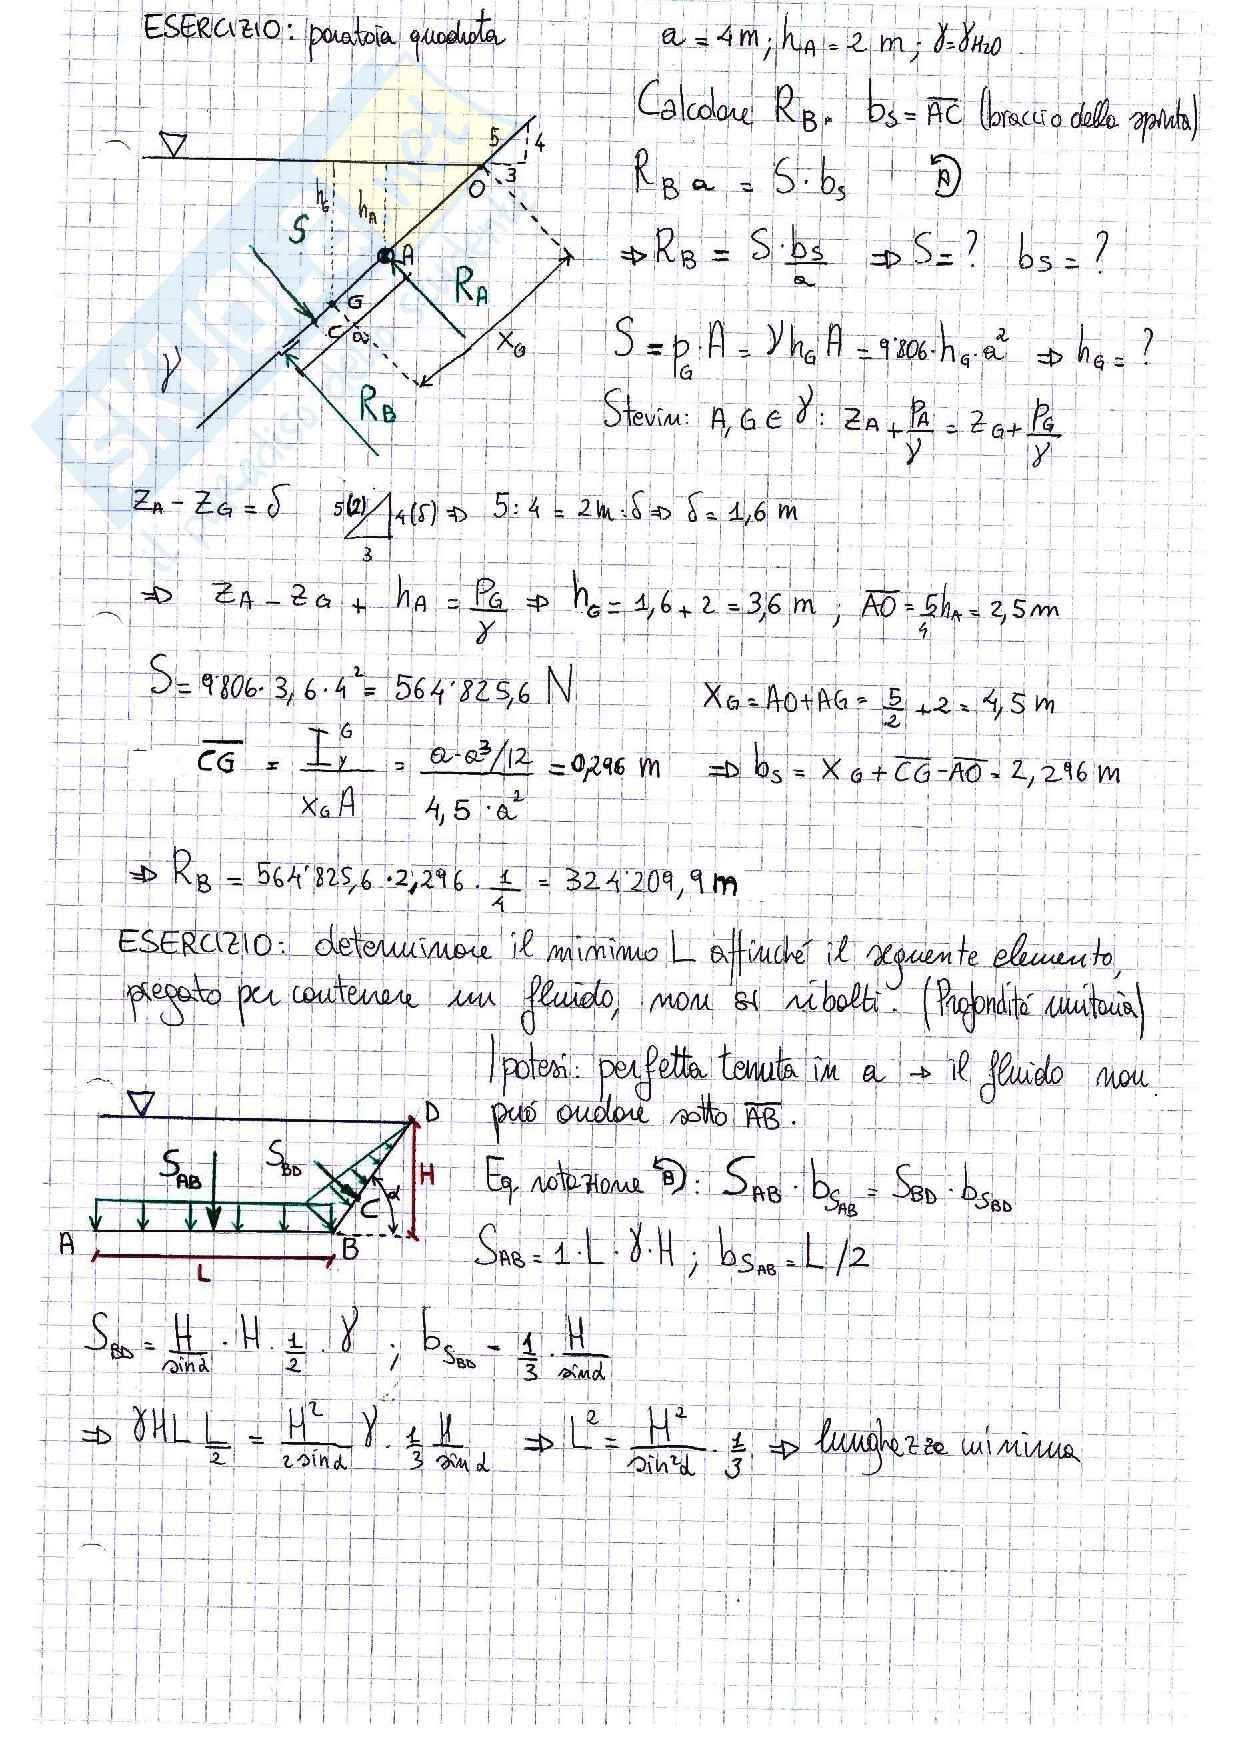 ESERCIZIO: paratoia quadrata a = 4m; hA = 2 m; γ=γH2O
Calcolare RB. bs = AC (braccio della spinta)
RB a = S·bs A
⇒ RB = S·bs/a ⇒ S=? bs=?
S = pG·A = γhG A = 9'806·hG·a² ⇒ hG=?
Stevin: A, G ∈ γ: zA + pA/γ = zG + pG/γ
5 4 3
O
hG hA
S
A
RA
G
C a
xG
γ
RB
zA - zG = δ 5(2) 4(δ) 3 ⇒ 5:4 = 2m:δ ⇒ δ=1,6 m
⇒ zA - zG + hA = pG/γ ⇒ hG = 1,6+2 = 3,6 m ; AO = 5/4 hA = 2,5m
S = 9'806·3,6·4² = 564'825,6 N xG = AO+AG = 5/2 + 2 = 4,5 m
CG = IyG/xG A = a·a³/12 / 4,5·a² = 0,296 m ⇒ bs = xG + CG - AO = 2,296 m
⇒ RB = 564'825,6·2,296·1/4 = 324'209,9 m
ESERCIZIO: determinare il minimo L affinché il seguente elemento,
piegato per contenere un fluido, non si ribolti. (Profondità unitaria)
Ipotesi: perfetta tenuta in a → il fluido non
può andare sotto AB.
D
SAB SBD H
C α
A B
L
Eq. rotazione B: SAB·bSAB = SBD·bSBD
SAB = 1·L·γ·H ; bSAB = L/2
SBD = H/sinα·H·1/2·γ ; bSBD = 1/3·H/sinα
⇒ γHL L/2 = H²/2sinα γ·1/3 H/sinα ⇒ L² = H²/sin²α·1/3 ⇒ lunghezza minima